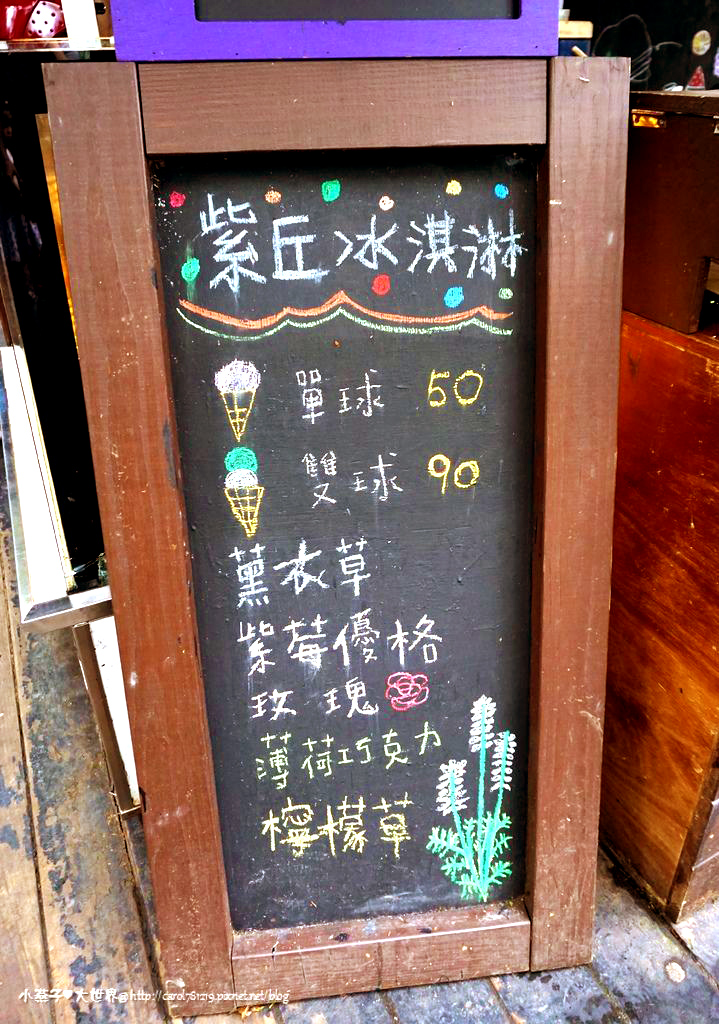 紫丘冰淇淋
單球 50
雙球 90
薰衣草
紫莓優格
玫瑰
薄荷巧克力
檸檬草
小蓁子♥大世界@http://carol781219.pixnet.net/blog